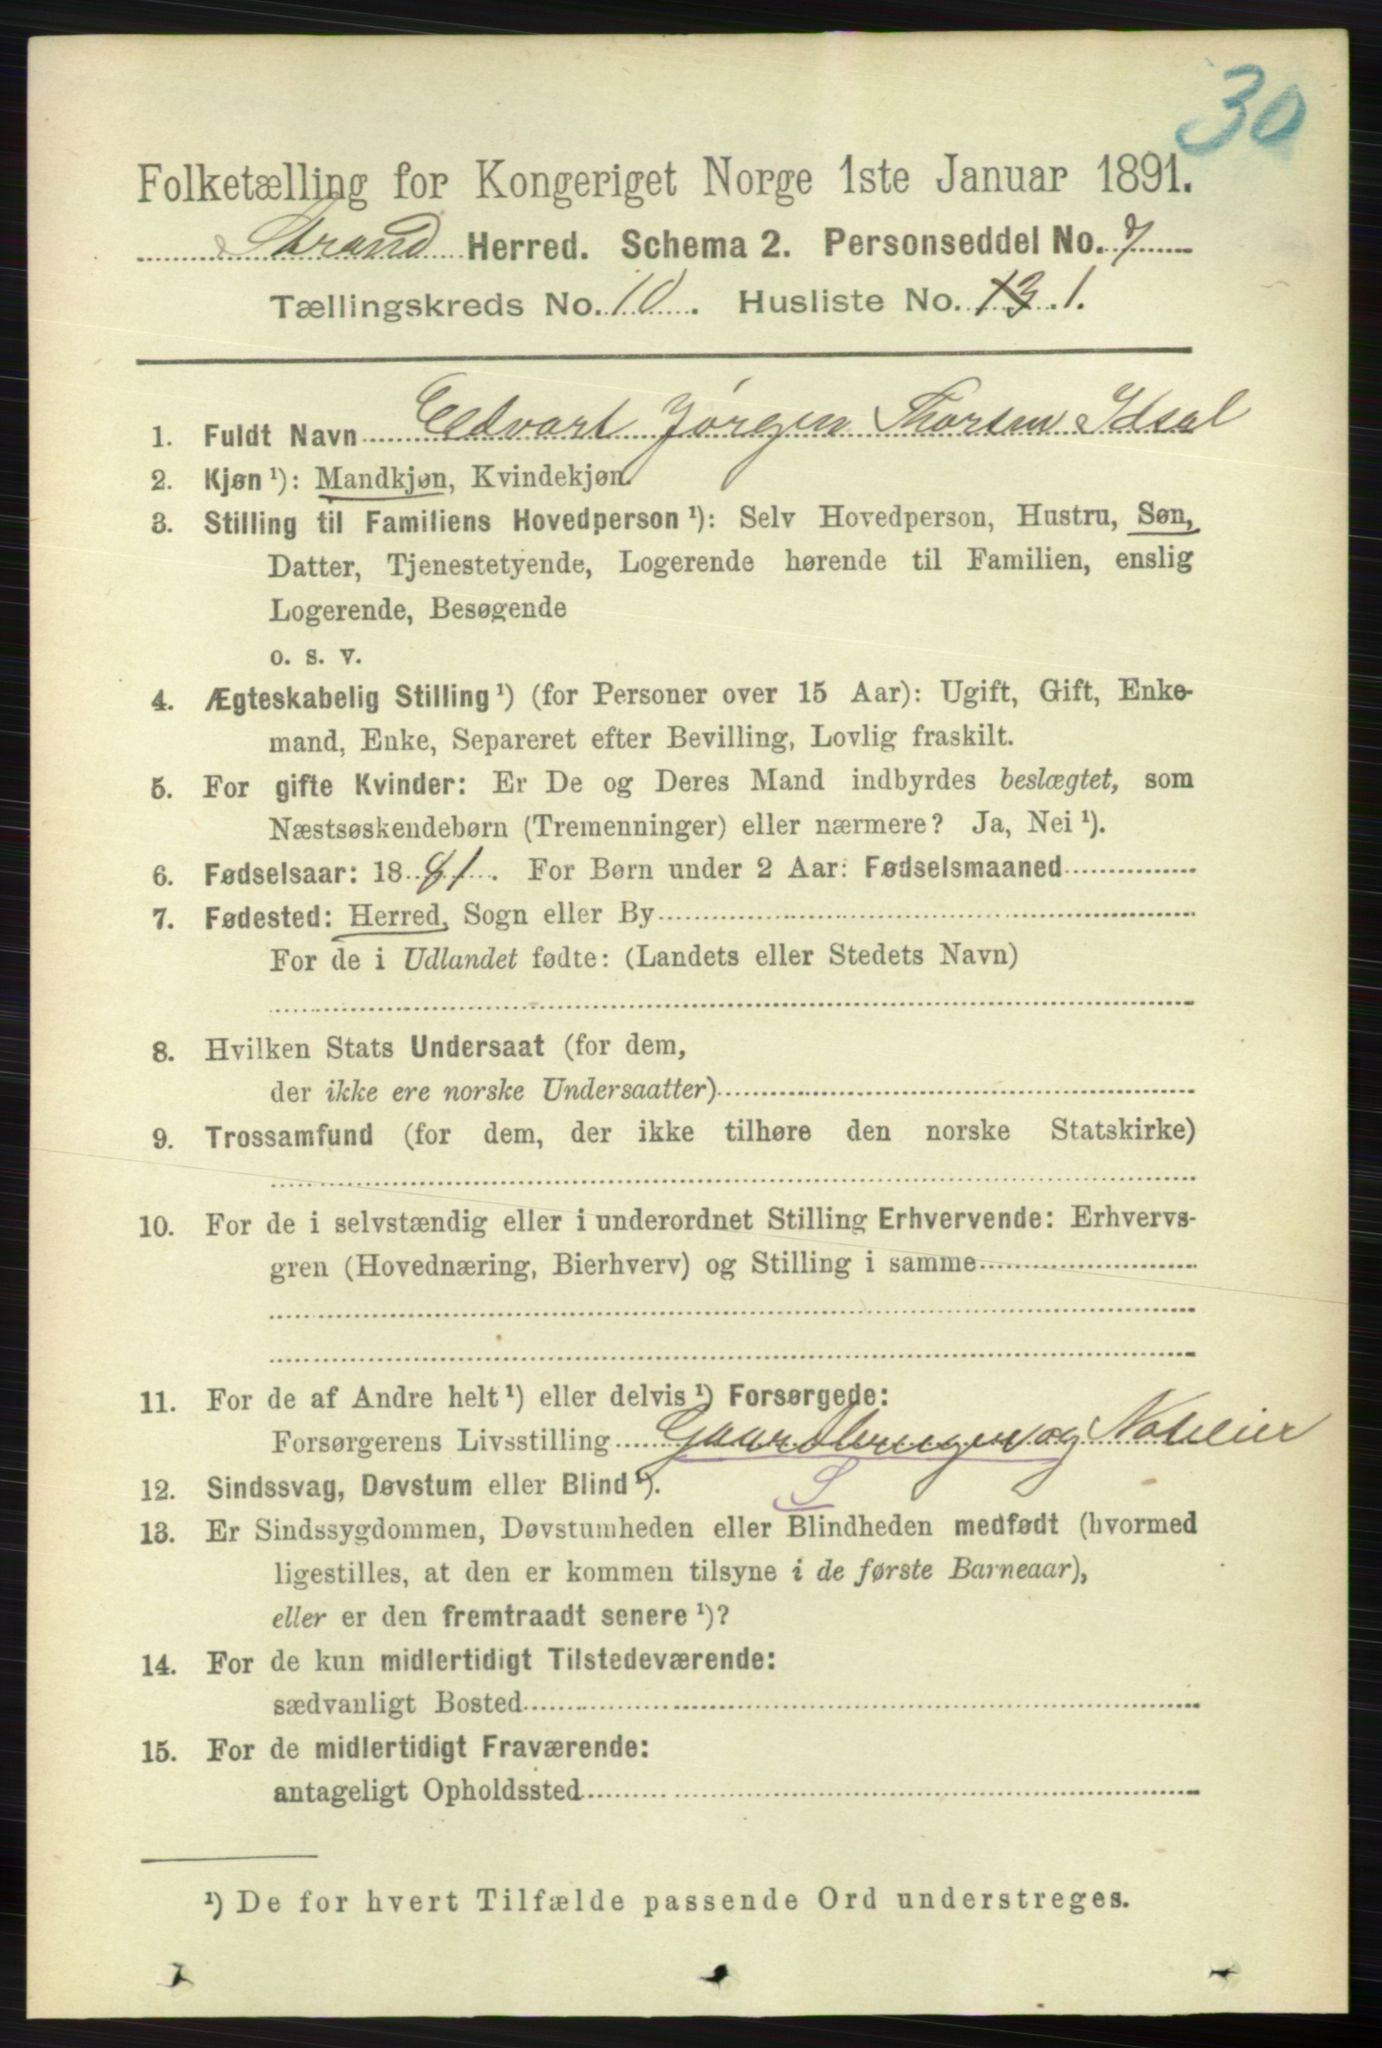 30
Folketælling for Kongeriget Norge 1ste Januar 1891.
Strand Herred. Schema 2. Personseddel No. 7
Tællingskreds No. 10. Husliste No. 13. 1.
1. Fuldt Navn Edvart Jørgen Thorsen Idsal
2. Kjøn ¹): Mandkjøn, Kvindekjøn.
3. Stilling til Familiens Hovedperson ¹): Selv Hovedperson, Hustru, Søn,
Datter, Tjenestetyende, Logerende hørende til Familien, enslig
Logerende, Besøgende
o. s. v.
4. Ægteskabelig Stilling ¹) (for Personer over 15 Aar): Ugift, Gift, Enke-
mand, Enke, Separeret efter Bevilling, Lovlig fraskilt.
5. For gifte Kvinder: Er De og Deres Mand indbyrdes beslægtet, som
Næstsøskendebørn (Tremenninger) eller nærmere? Ja, Nei ¹).
6. Fødselsaar: 18 81. For Børn under 2 Aar: Fødselsmaaned
7. Fødested: Herred, Sogn eller By
For de i Udlandet fødte: (Landets eller Stedets Navn)
8. Hvilken Stats Undersaat (for dem,
der ikke ere norske Undersaatter)
9. Trossamfund (for dem, der ikke tilhøre den norske Statskirke)
10. For de i selvstændig eller i underordnet Stilling Erhvervende: Erhvervs-
gren (Hovednæring, Bierhverv) og Stilling i samme
11. For de af Andre helt ¹) eller delvis ¹) Forsørgede:
Forsørgerens Livsstilling Gaardbruger og Noteier
S
12. Sindssvag, Døvstum eller Blind ¹).
13. Er Sindssygdommen, Døvstumheden eller Blindheden medfødt (hvormed
ligestilles, at den er kommen tilsyne i de første Barneaar),
eller er den fremtraadt senere ¹)?
14. For de kun midlertidigt Tilstedeværende:
sædvanligt Bosted
15. For de midlertidigt Fraværende:
antageligt Opholdssted
¹) De for hvert Tilfælde passende Ord understreges.